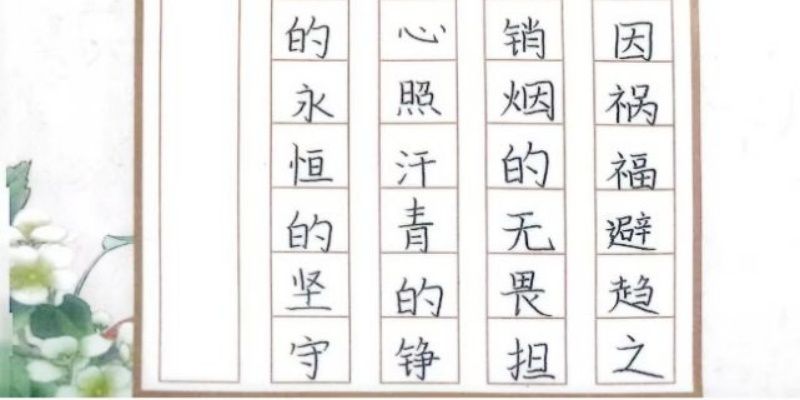 因祸福避趋之
销烟的无畏担
心照汗青的铮
的永恒的坚守